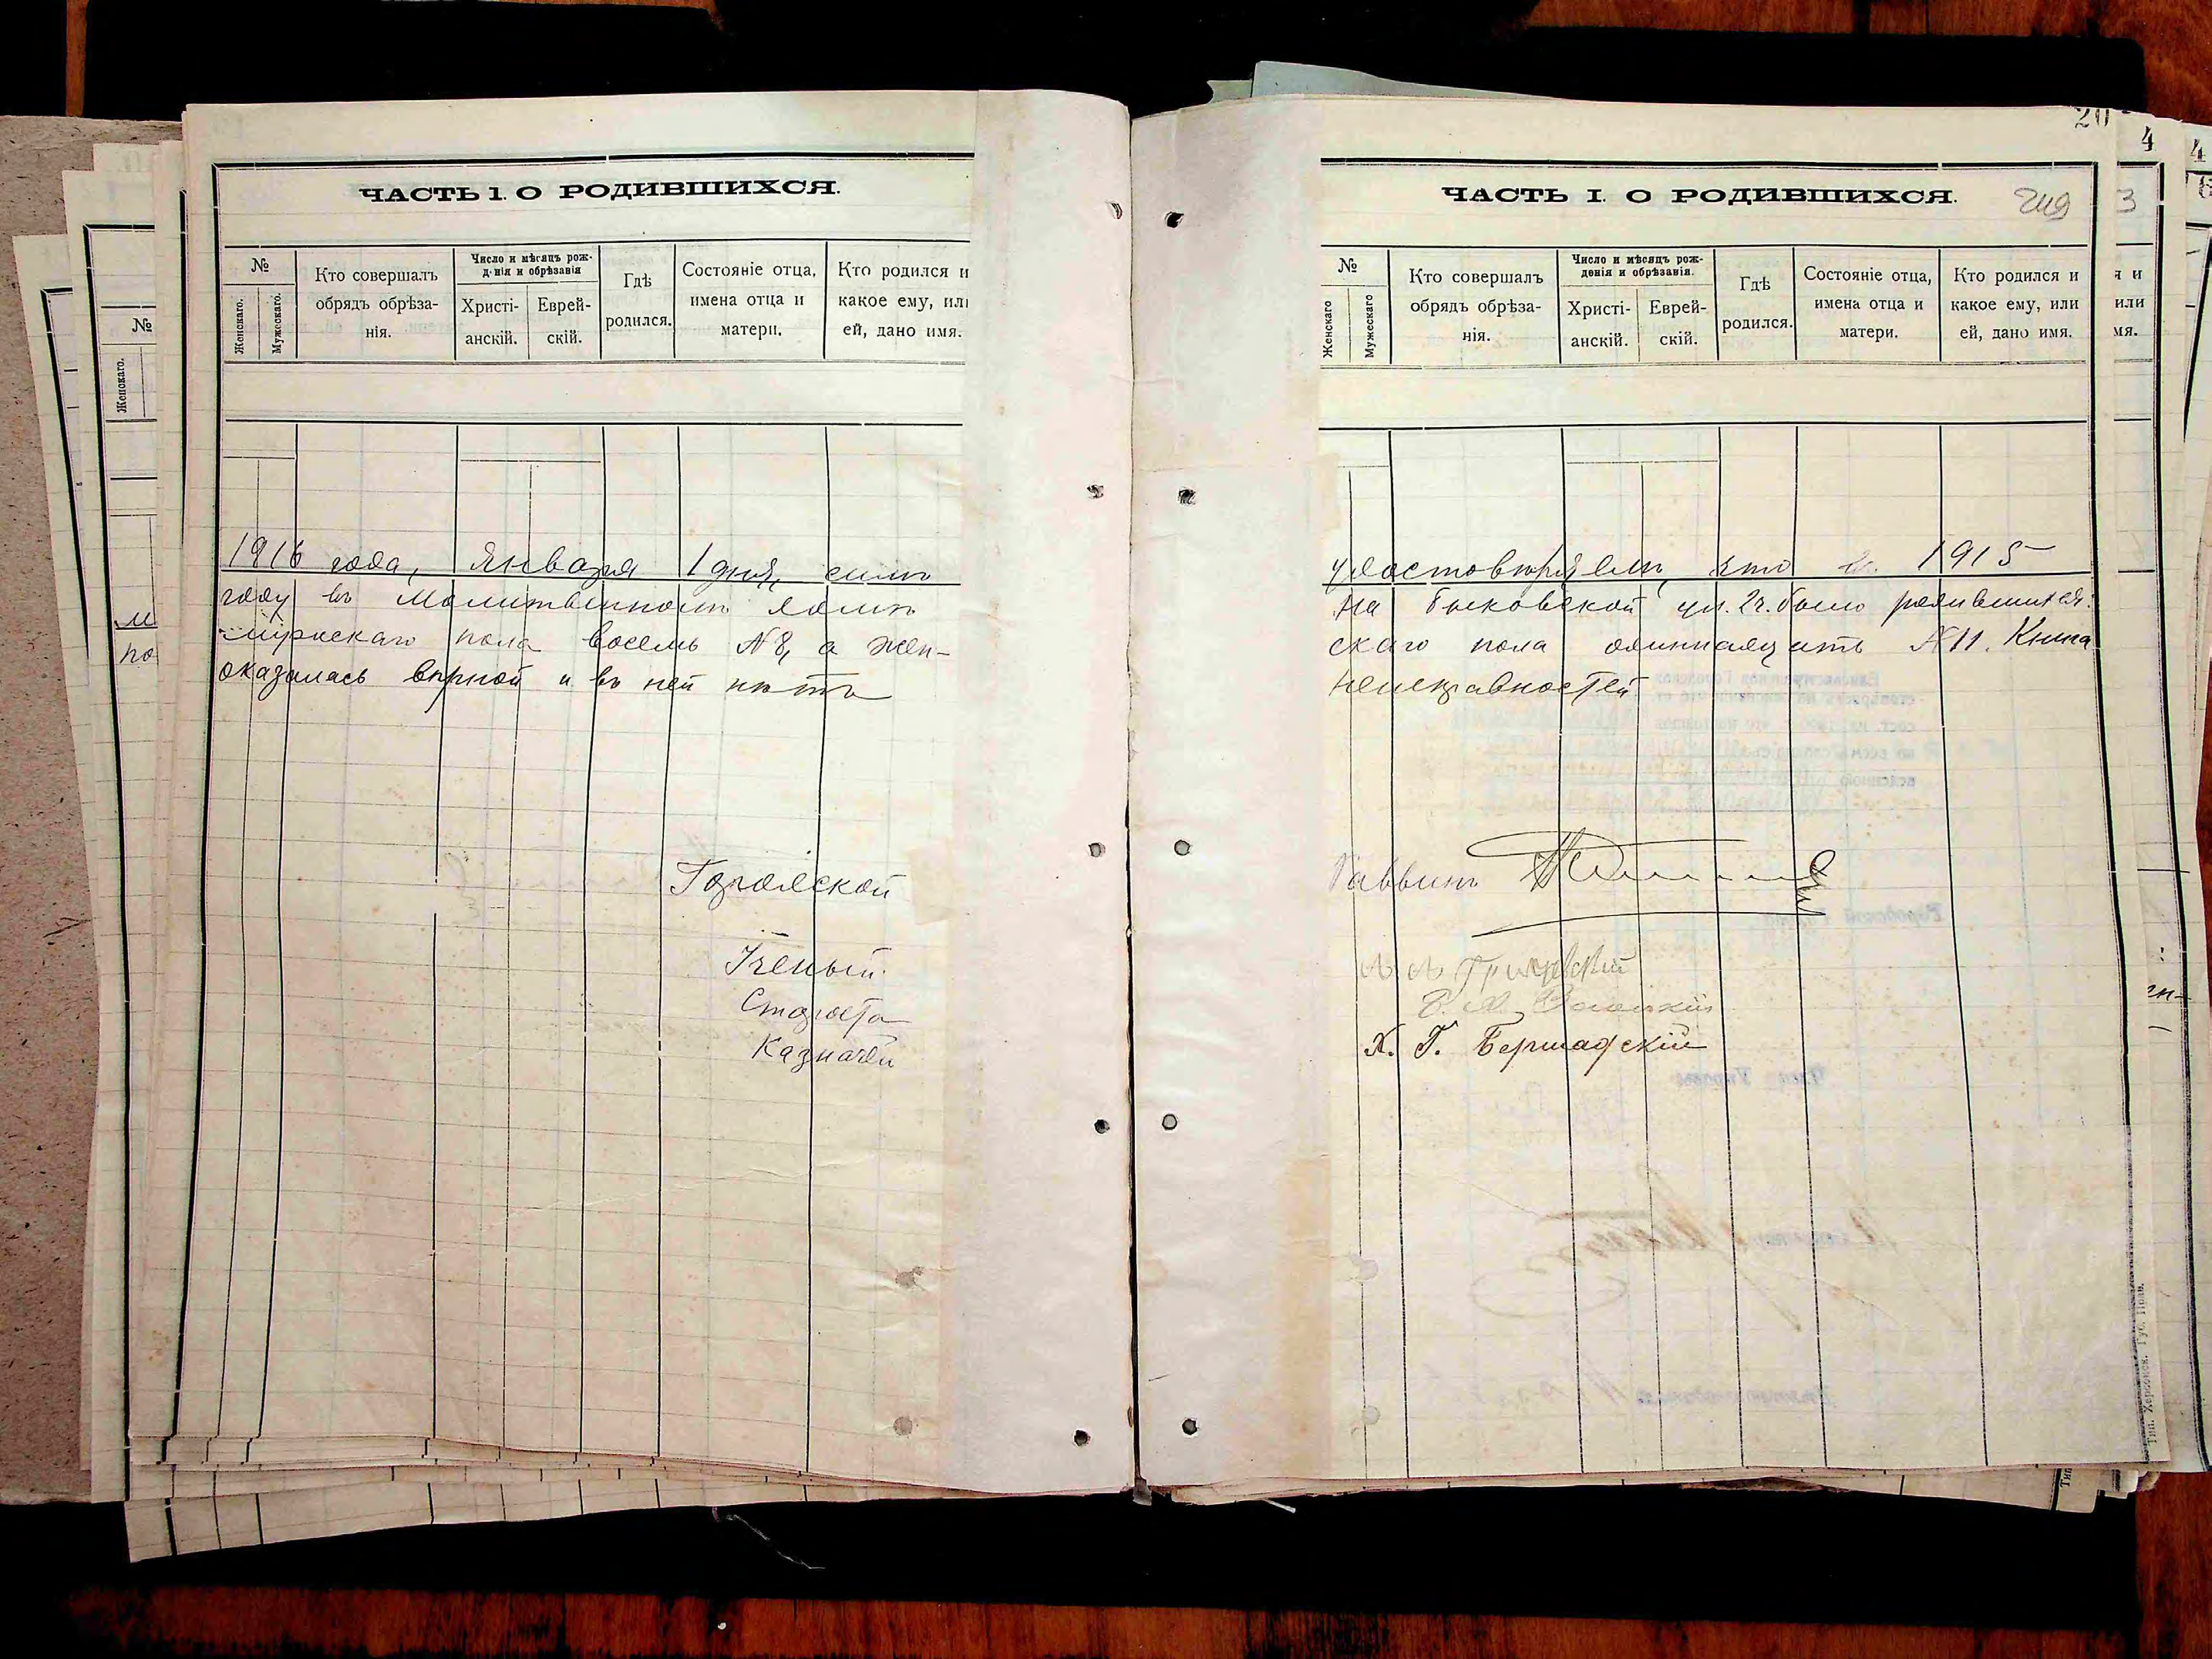 ЧАСТЬ 1. О РОДИВШИХСЯ.
№
Женскаго.
Мужескаго.
Кто совершалъ
обрядъ обрѣза-
нія.
Число и мѣсяцъ рож-
д·нія и обрѣзанія
Христі-
анскій.
Еврей-
скій.
Гдѣ
родился.
Состояніе отца,
имена отца и
матери.
Кто родился и
какое ему, или
ей, дано имя.
1916 года, Января 1 дня, симъ
году въ Молитвенномъ домѣ
мужскаго пола восемь №8, а жен-
оказалась вѣрной и въ ней нѣтъ
Городской
Ученый
Староста
Казначей
№
Женскаго.
м
по
20
ЧАСТЬ I. О РОДИВШИХСЯ.
249
№
Женскаго
Мужескаго
Кто совершалъ
обрядъ обрѣза-
нія.
Число и мѣсяцъ рож-
денія и обрѣзанія.
Христі-
анскій.
Еврей-
скій.
Гдѣ
родился.
Состояніе отца,
имена отца и
матери.
Кто родился и
какое ему, или
ей, дано имя.
удостовѣряемъ, что въ 1915
на Быковской ул. 2ч. было родившихся:
скаго пола одиннадцать №11. Книга
неисправностей
Раввинъ
Х. Г. Бершадскій
4
3
я и
или
мя.
4
Тип. Херсонск. Губ. Прав.